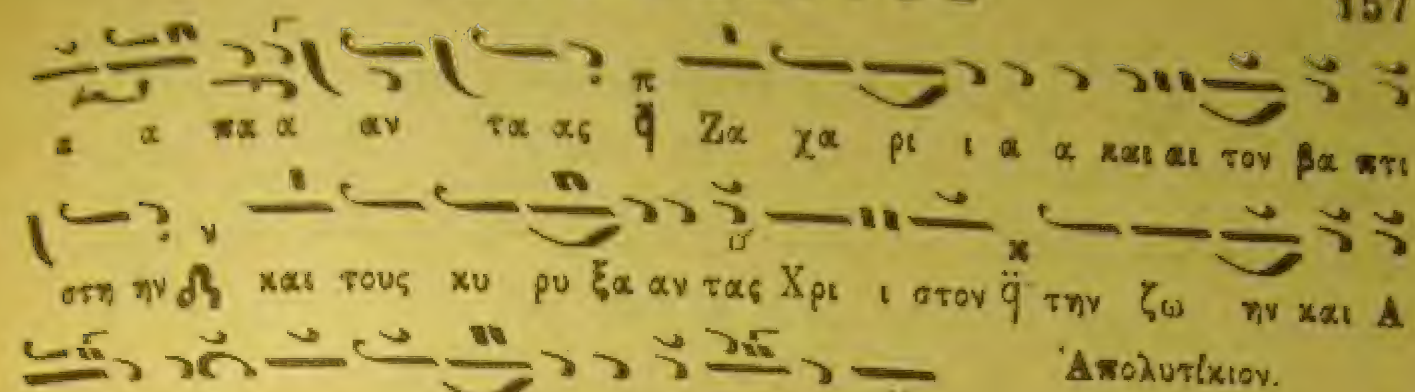 157
α α πα α αν τα ας π ϥ Ζα χα ρι ι α α και αι τον βα πτι
στη ην ν και τους κυ ρυ ξα αν τας Χρι ι στον κ ϥ την ζω ην και Α
Ἀπολυτίκιον.